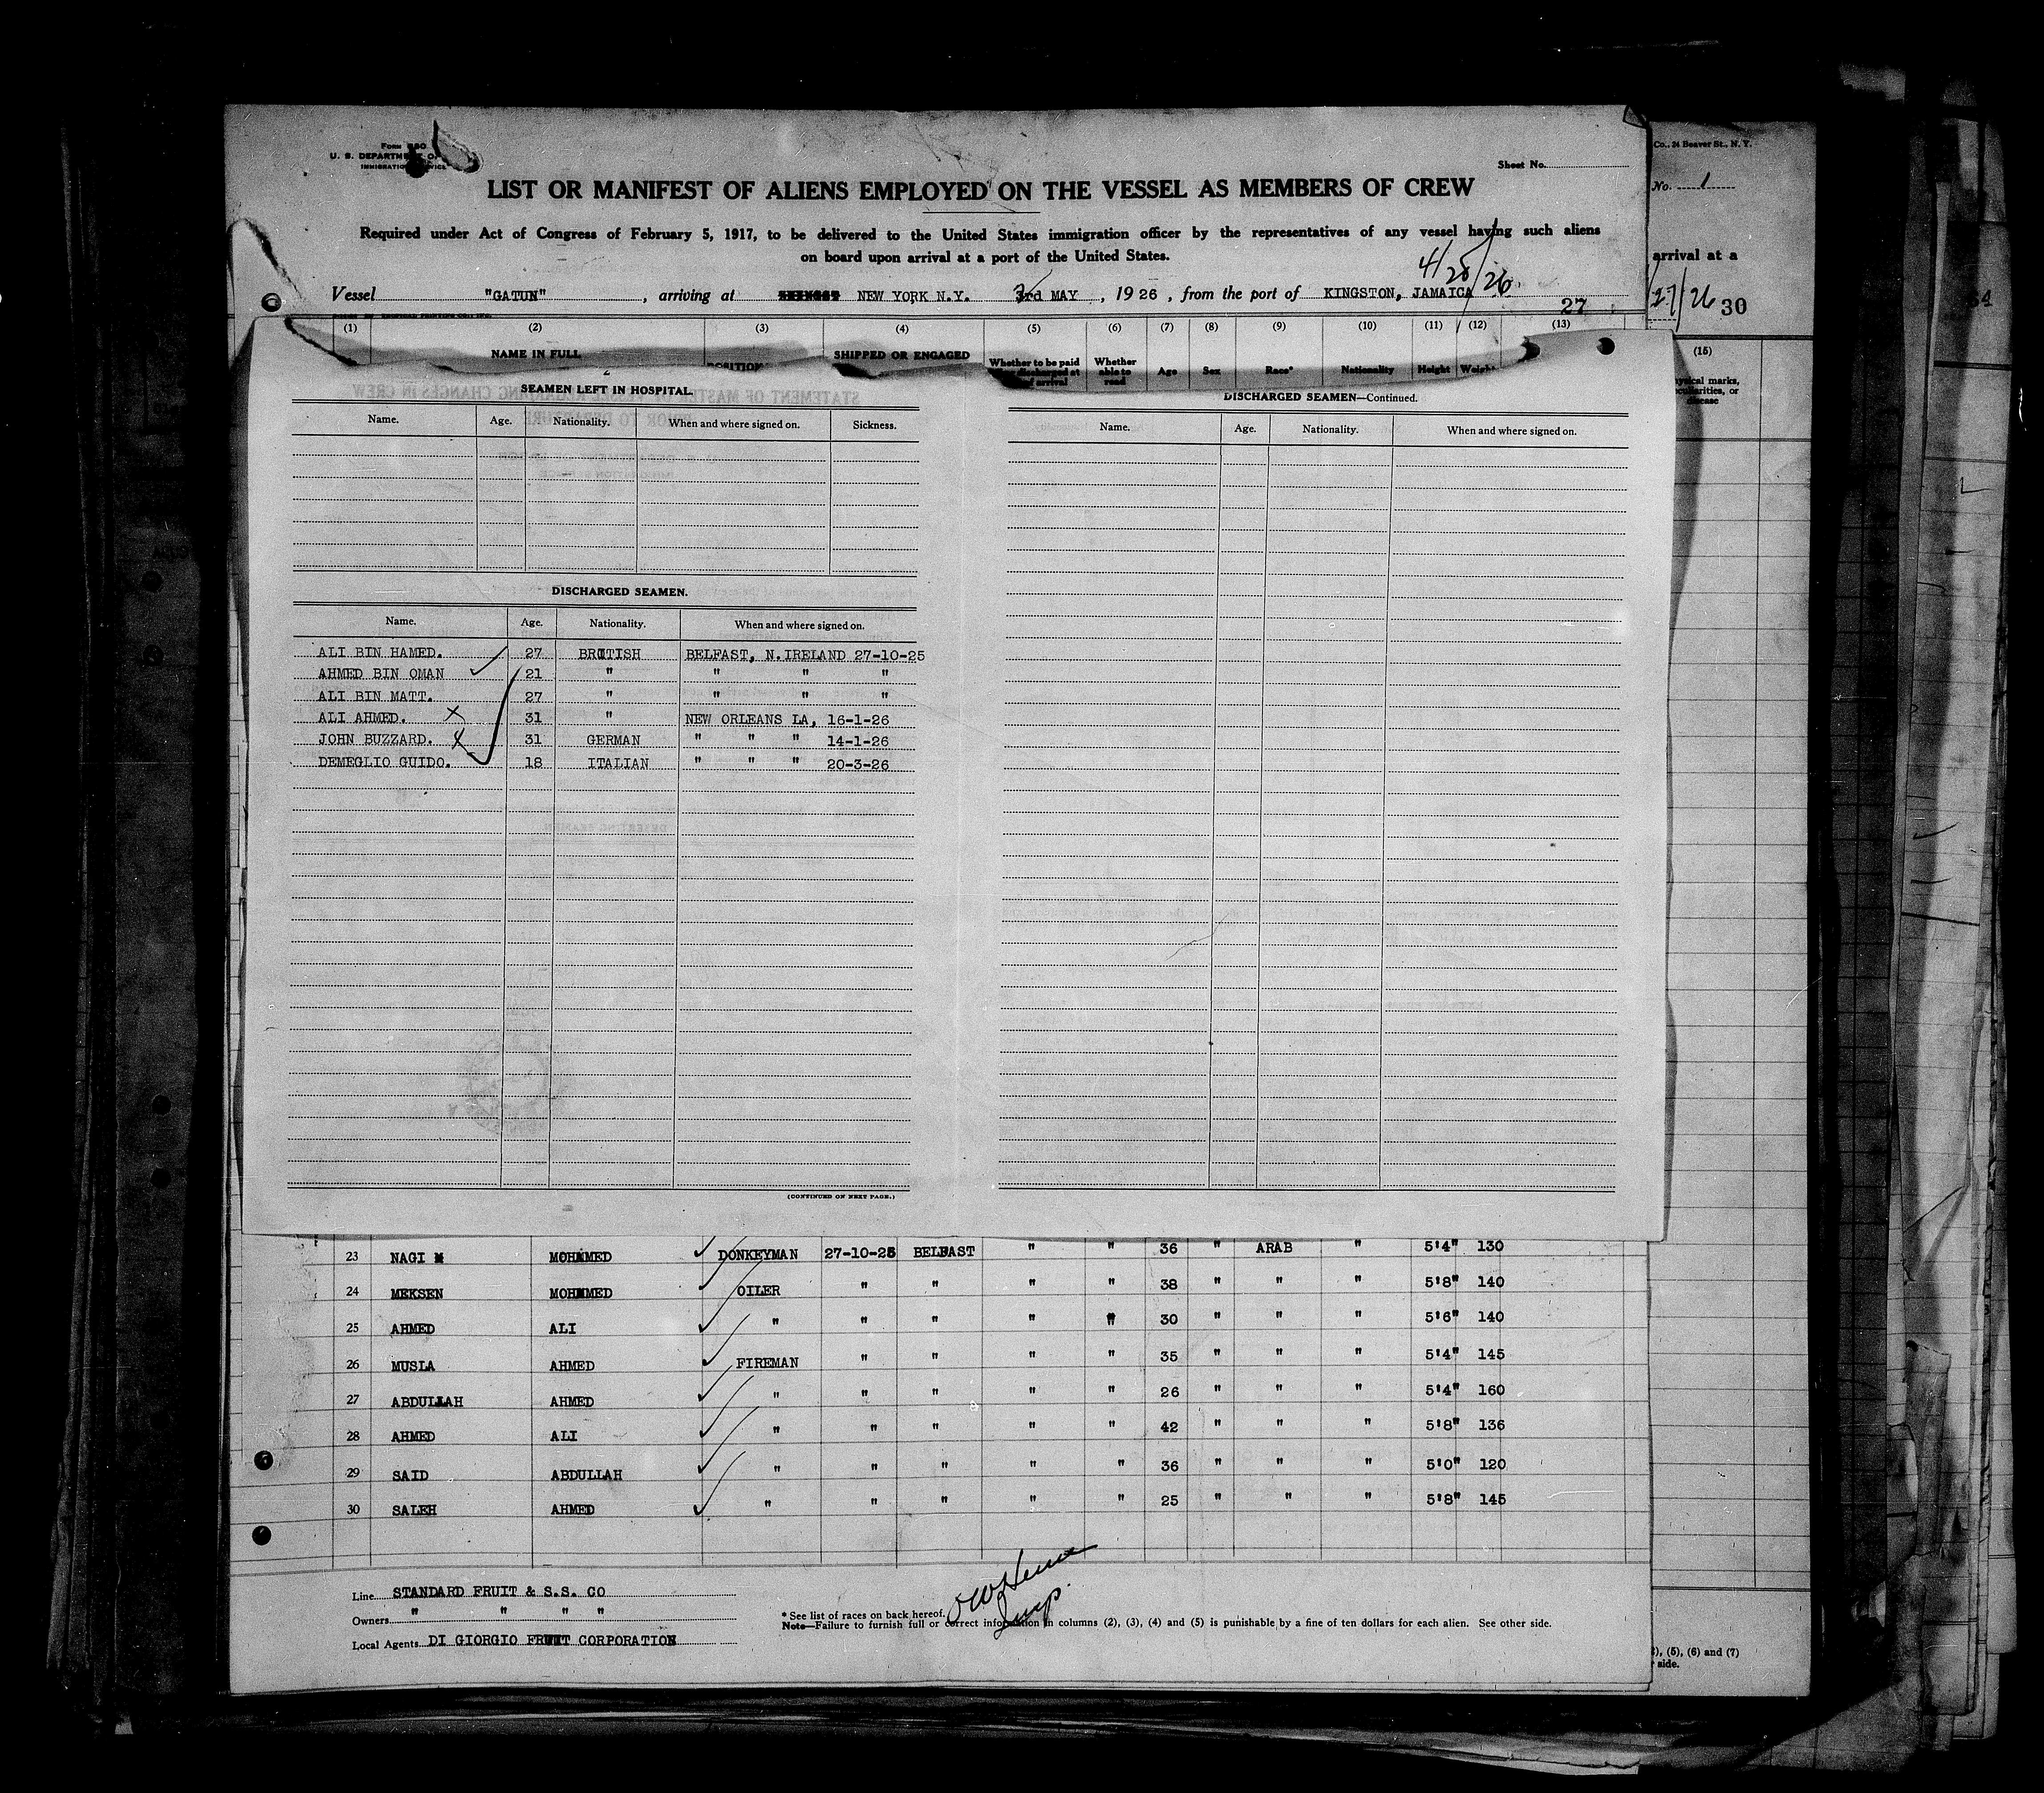 Co., 24 Beaver St., N. Y.
Form
U. S. DEPARTMENT OF
Sheet No.
No. 1
LIST OR MANIFEST OF ALIENS EMPLOYED ON THE VESSEL AS MEMBERS OF CREW
Required under Act of Congress of February 5, 1917, to be delivered to the United States immigration officer by the representatives of any vessel having such aliens
on board upon arrival at a port of the United States.
arrival at a
4/28/26
Vessel "GATUN", arriving at NEW YORK N.Y. 3rd MAY, 1926, from the port of KINGSTON, JAMAICA
27
27/26 30
(1) (2) (3) (4) (5) (6) (7) (8) (9) (10) (11) (12) (13)
(15)
NAME IN FULL POSITION SHIPPED OR ENGAGED Whether to be paid Whether able to read Age Sex Race* Nationality Height Weight
marks, or disease
2
SEAMEN LEFT IN HOSPITAL.
Name. Age. Nationality. When and where signed on. Sickness.
DISCHARGED SEAMEN.
Name. Age. Nationality. When and where signed on.
ALI BIN HAMED. 27 BRITISH BELFAST, N.IRELAND 27-10-25
AHMED BIN OMAN 21 " " " "
ALI BIN MATT. 27 " " " "
ALI AHMED. X 31 " NEW ORLEANS LA, 16-1-26
JOHN BUZZARD. X 31 GERMAN " " " 14-1-26
DEMEGLIO GUIDO. 18 ITALIAN " " " 20-3-26
(CONTINUED ON NEXT PAGE.)
DISCHARGED SEAMEN—Continued.
Name. Age. Nationality. When and where signed on.
23 NAGI MOHAMMED DONKEYMAN 27-10-25 BELFAST " " 36 " ARAB " 5'4" 130
24 MEKSEN MOHAMMED OILER " " " " 38 " " " 5'8" 140
25 AHMED ALI " " " " " 30 " " " 5'6" 140
26 MUSLA AHMED FIREMAN " " " " 35 " " " 5'4" 145
27 ABDULLAH AHMED " " " " " 26 " " " 5'4" 160
28 AHMED ALI " " " " " 42 " " " 5'8" 136
29 SAID ABDULLAH " " " " " 36 " " " 5'0" 120
30 SALEH AHMED " " " " " 25 " " " 5'8" 145
Line STANDARD FRUIT & S.S. CO
Owners " " " "
Local Agents DI GIORGIO FRUIT CORPORATION
* See list of races on back hereof.
Note—Failure to furnish full or correct information in columns (2), (3), (4) and (5) is punishable by a fine of ten dollars for each alien. See other side.
Insp.
(5), (6) and (7)
side.